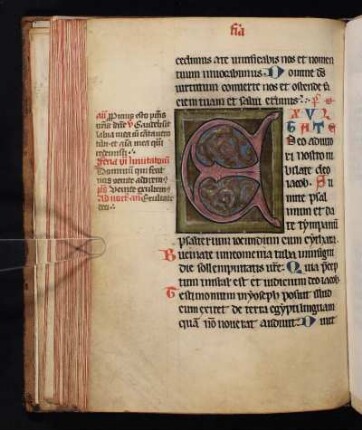 fia
cedimus a te vivificabis nos et nomen
tuum invocabimus. Domine ds
virtutum converte nos et ostende fa
ciem tuam et salvi erimus.
E
XUL
TATE
Deo adiuto
ri nostro iu
bilate deo
iacob. Su
mite psal
mum et da
te tympanum
psalterium iocundum cum cythara.
Bucinate in neomenia tuba in insigni
die sollempnitatis vre. Quia precep
tum in israel est et iudicium deo iacob
Testimonium in ioseph posuit illud
cum exiret de terra egypti linguam
quam non noverat audivit. Divit
labia mea
feria vi invitatorium
Dominum qui fecit
nos venite adoremus
ps Venite exultemus
Exultate
deo